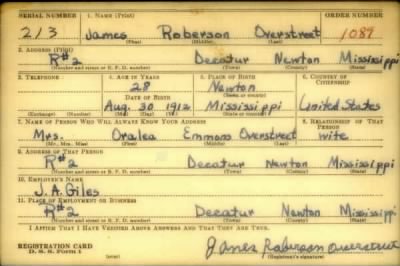 SERIAL NUMBER 1. NAME (Print) ORDER NUMBER
213 James Roberson Overstreet 1089
(First) (Middle) (Last)
2. ADDRESS (Print)
R#2 Decatur Newton Mississippi
(Number and street or R. F. D. number) (Town) (County) (State)
3. TELEPHONE 4. AGE IN YEARS 5. PLACE OF BIRTH 6. COUNTRY OF CITIZENSHIP
28 Newton
DATE OF BIRTH (Town or county)
Aug. 30 1912 Mississippi United States
(Exchange) (Number) (Mo.) (Day) (Yr.) (State or country)
7. NAME OF PERSON WHO WILL ALWAYS KNOW YOUR ADDRESS 8. RELATIONSHIP OF THAT PERSON
Mrs. Oralea Emmons Overstreet wife
(Mr., Mrs., Miss) (First) (Middle) (Last)
9. ADDRESS OF THAT PERSON
R#2 Decatur Newton Mississippi
(Number and street or R. F. D. number) (Town) (County) (State)
10. EMPLOYER'S NAME
J. A. Giles
11. PLACE OF EMPLOYMENT OR BUSINESS
R#2 Decatur Newton Mississippi
(Number and street or R. F. D. number) (Town) (County) (State)
I AFFIRM THAT I HAVE VERIFIED ABOVE ANSWERS AND THAT THEY ARE TRUE.
REGISTRATION CARD
D. S. S. Form 1 James Roberson Overstreet
(over) (Registrant's signature)